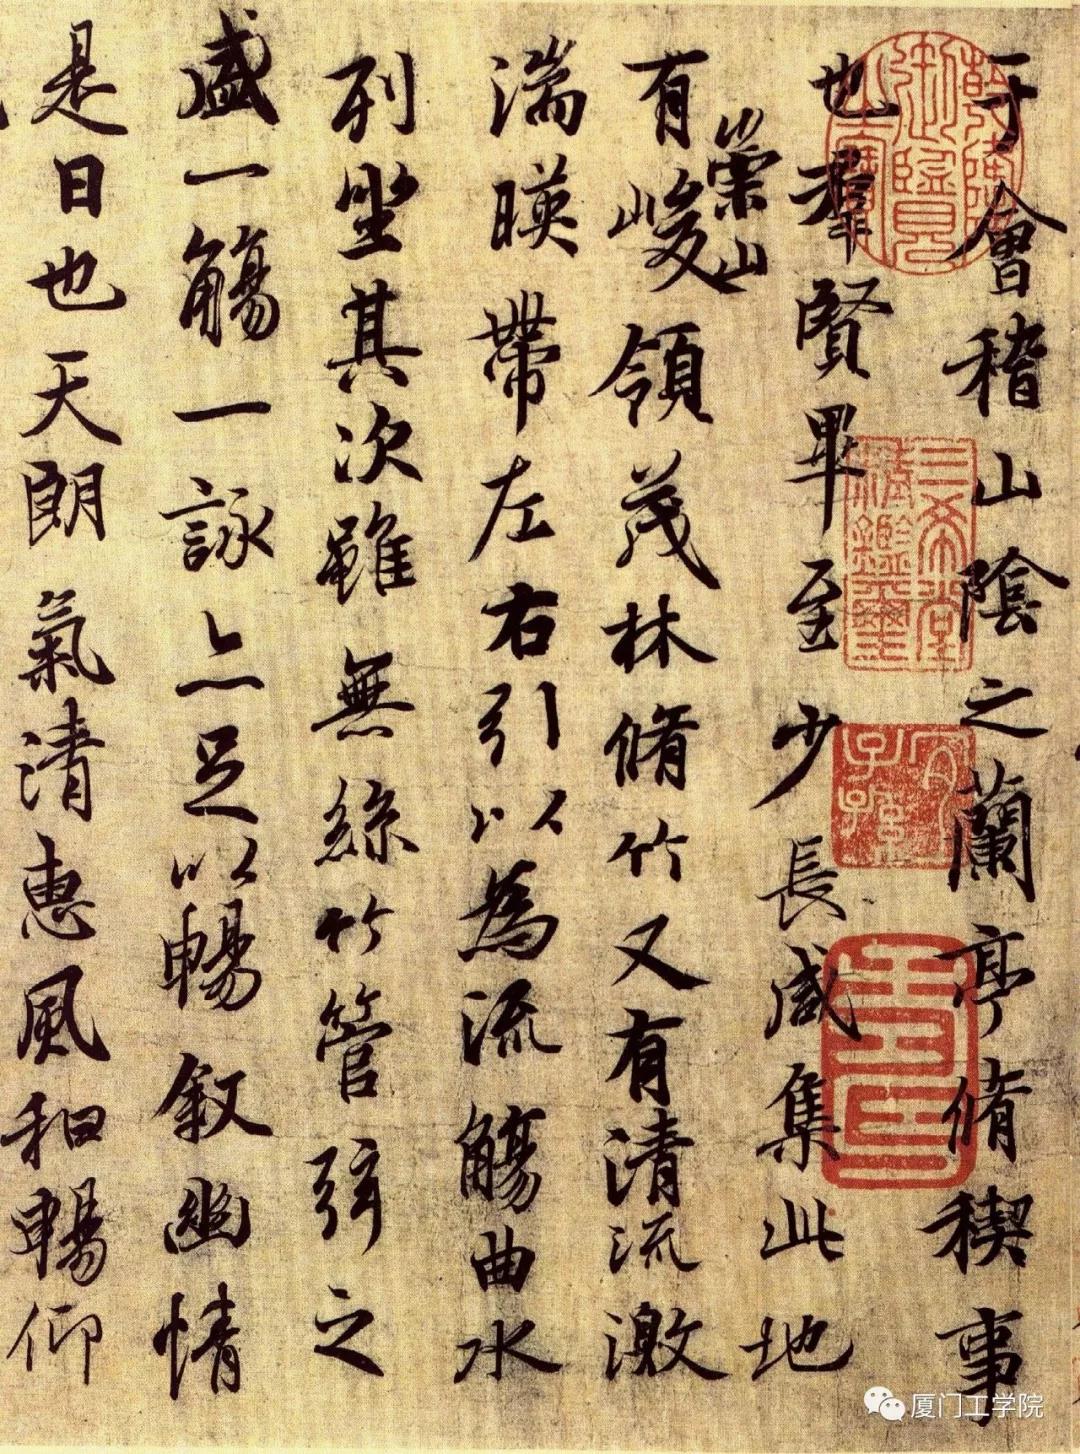 于會稽山陰之蘭亭脩稧事
也羣賢畢至少長咸集此地
崇山
有峻領茂林脩竹又有清流激
湍暎帶左右引以為流觴曲水
列坐其次雖無絲竹管弦之
盛一觴一詠亦足以暢叙幽情
是日也天朗氣清惠風和暢仰
三希堂
精鑑璽
宜子孫
厦门工学院